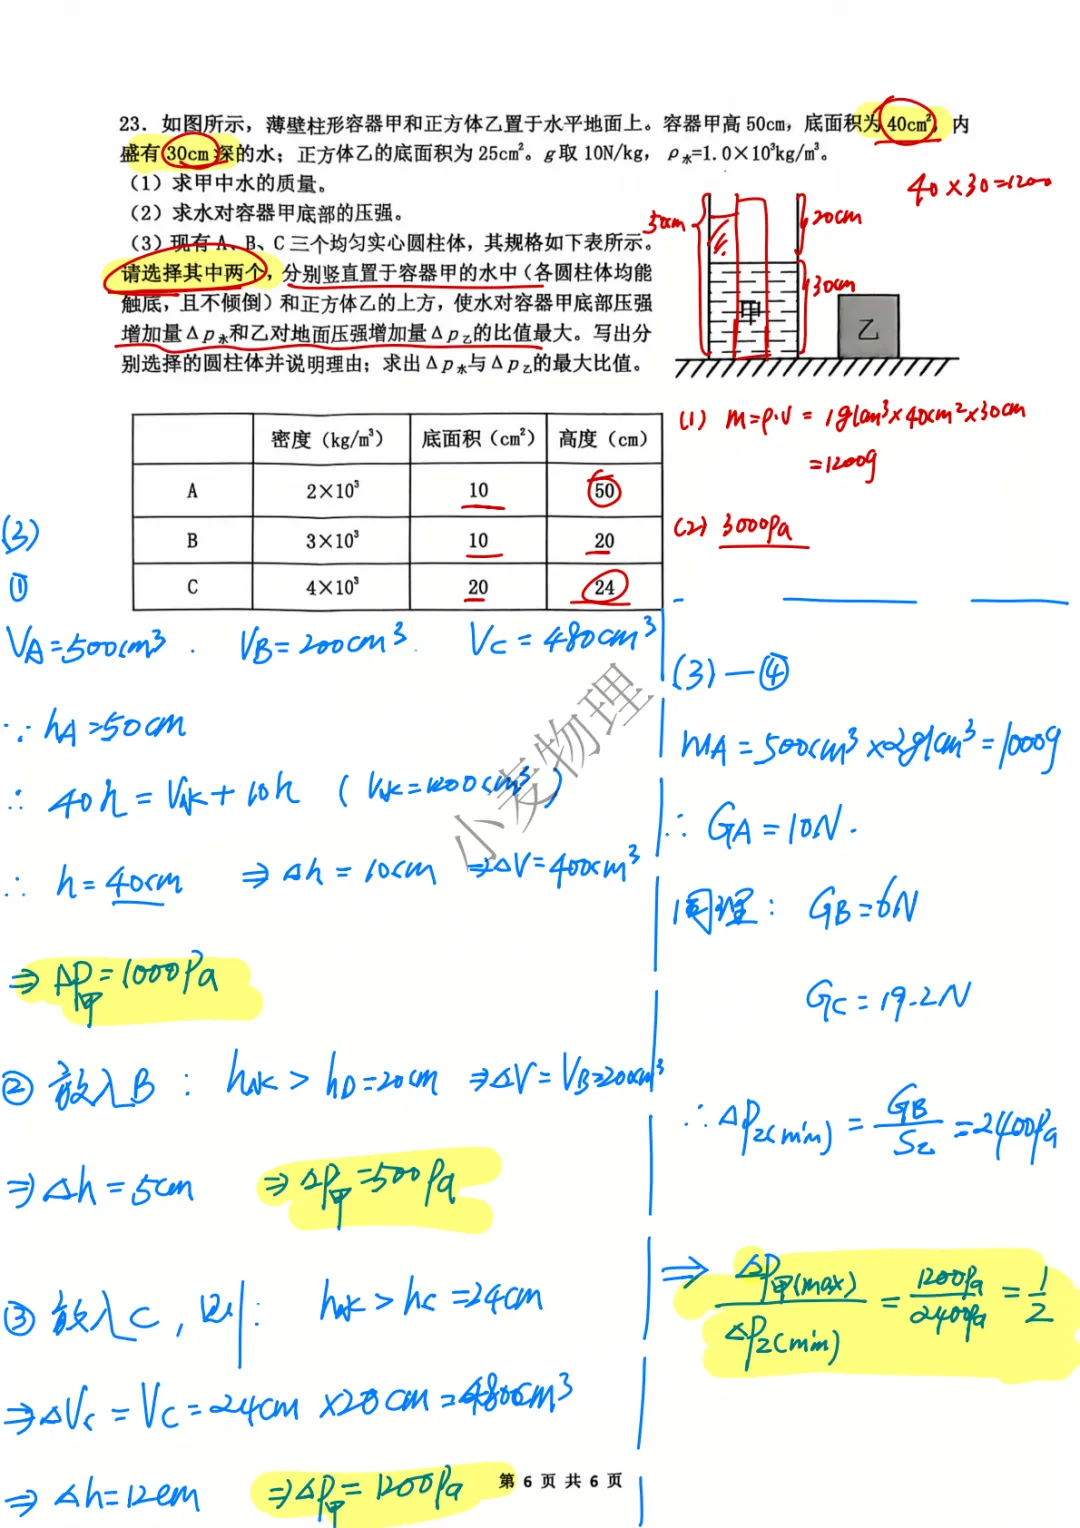 23. 如图所示，薄壁柱形容器甲和正方体乙置于水平地面上。容器甲高 50cm，底面积为 40cm²，内
盛有 30cm 深的水；正方体乙的底面积为 25cm²。g 取 10N/kg，ρ水=1.0×10³kg/m³。
40×30=1200
（1）求甲中水的质量。
（2）求水对容器甲底部的压强。
（3）现有 A、B、C 三个均匀实心圆柱体，其规格如下表所示。
请选择其中两个，分别竖直置于容器甲的水中（各圆柱体均能
触底，且不倾倒）和正方体乙的上方，使水对容器甲底部压强
增加量 Δp水和乙对地面压强增加量 Δp乙的比值最大。写出分
别选择的圆柱体并说明理由；求出 Δp水与 Δp乙的最大比值。
50cm
20cm
30cm
甲
乙
密度（kg/m³） 底面积（cm²） 高度（cm）
A 2×10³ 10 50
B 3×10³ 10 20
C 4×10³ 20 24
(1) m=ρ·V = 1g/cm³×40cm²×30cm
=1200g
(2) 3000Pa
(3)
①
VA=500cm³. VB=200cm³. VC=480cm³
∵ hA=50cm
∴ 40h=V水+10h (V水=1200cm³)
∴ h=40cm ⇒Δh=10cm ⇒ΔV=400cm³
⇒ ΔP甲=1000Pa
② 放入B: h水>hB=20cm ⇒ΔV=VB=200cm³
⇒Δh=5cm ⇒ΔP甲=500Pa
③ 放入C, 则: h水>hC=24cm
⇒ΔVC=VC=24cm×20cm=480cm³
⇒Δh=12cm ⇒ΔP甲=1200Pa
(3)—④
mA=500cm³×2g/cm³=1000g
∴ GA=10N.
同理: GB=6N
GC=19.2N
∴ΔP乙(min)=GB/S乙=2400Pa
⇒ ΔP甲(max)/ΔP乙(min)=1200Pa/2400Pa=1/2
小麦物理
第 6 页 共 6 页